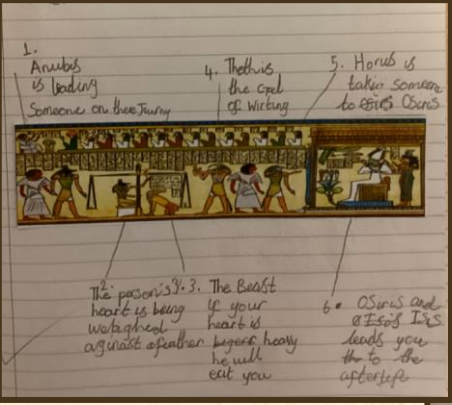 1.
Anubis
is leading
Someone on there Jurny
4. Thoth is
the God
of Wirting
5. Horus is
takin someone
to Osiris
2.
The person's
heart is being
weighed
aginast a feather
3. The Beast
if your
heart is
heavy
he will
eat you
6. Osiris and
Isis
leads you
to the
afterlife